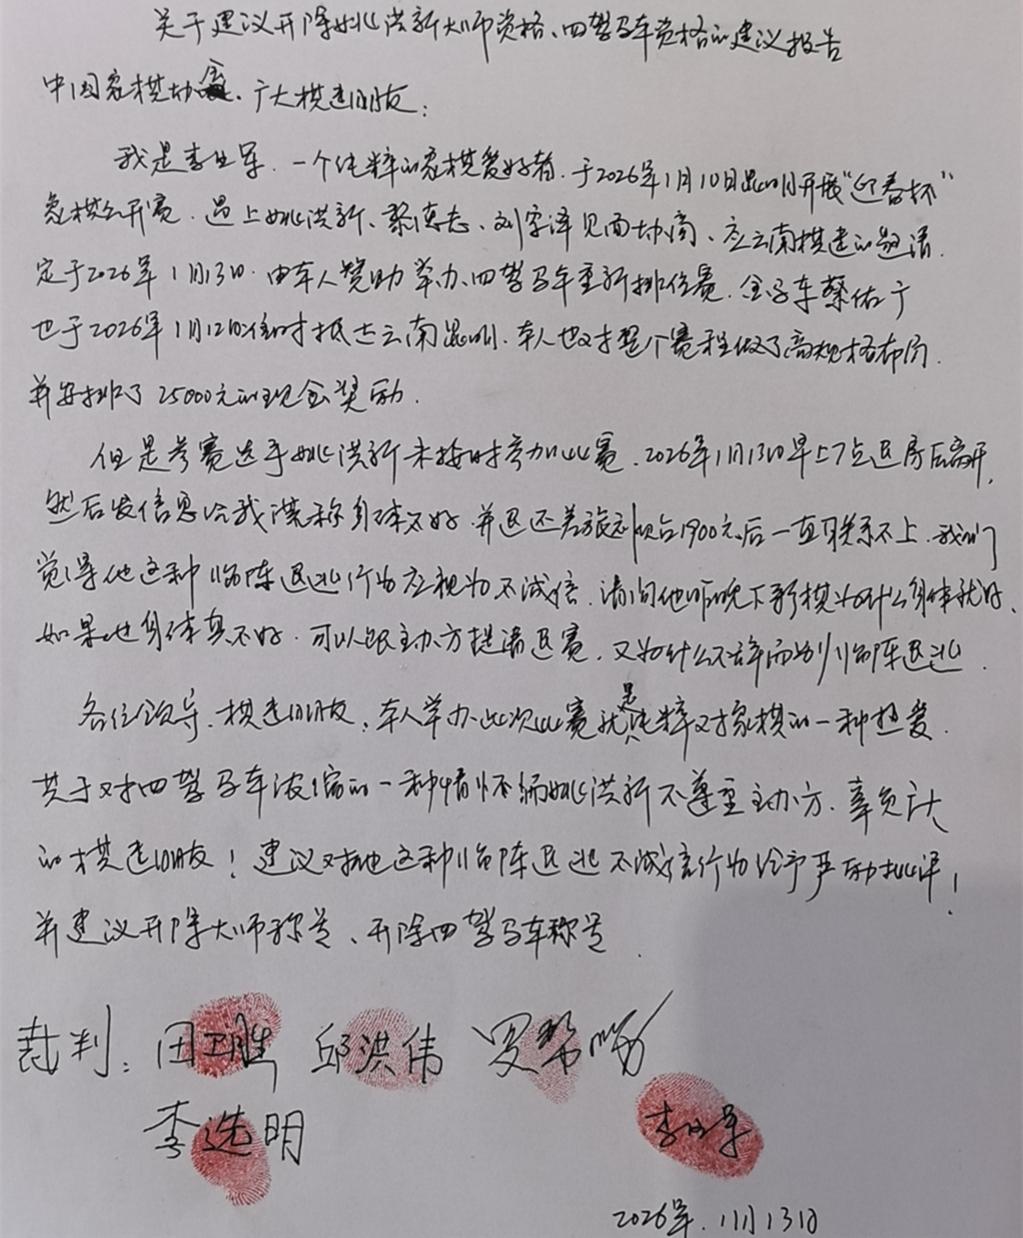 关于建议开除姚洪新大师资格、四驾马车资格的建议报告
中国象棋协会、广大棋迷朋友:
我是李 军、一个纯粹的象棋爱好者、于2026年1月10日昆明开展“迎春杯”
象棋公开赛、遇上姚洪新、黎德志、刘宇泽见面协商、应云南棋迷的邀请、
定于2026年1月13日.由本人赞助举办、四驾马车重新排位赛、 蔡佑广
也于2026年1月12日准时抵达云南昆明、本人也对整个赛程做了高规格布局.
并安排了25000元的现金奖励.
但是参赛选手姚洪新未按时参加比赛、2026年1月13日早上7点退房后离开,
然后发信息给我谎称身体不好.并退还差旅 1900元后一直联系不上.我们
觉得他这种临阵退逃行为应视为不诚信、请问他昨晚下彩棋为什么身体就好、
如果他身体真不好.可以跟主办方提请退赛、又为什么不辞而别临阵退逃.
各位领导、棋迷朋友、本人举办此次比赛就是纯粹对象棋的一种热爱.
基于对四驾马车浓缩的一种情怀 姚洪新不尊重主办方、辜负广大
的棋迷朋友!建议对他这种临阵退逃不诚信行为给予严励批评!
并建议开除大师称号、开除四驾马车称号.
裁判: 田 胜 邱洪伟 罗
李选明 李 军
2026年.1月13日